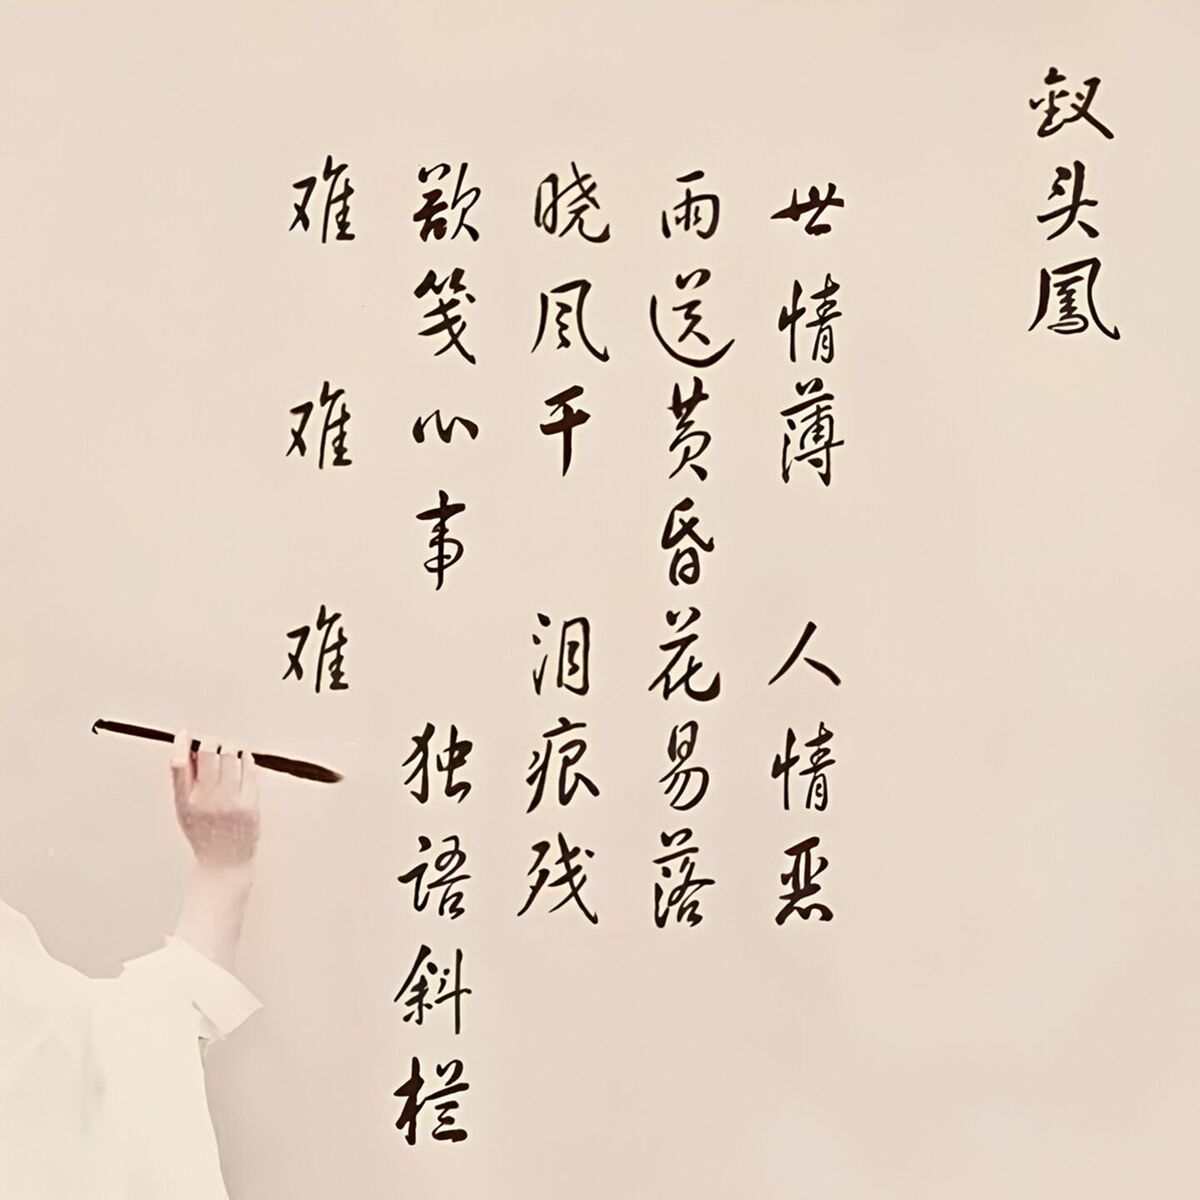 钗头凤
世情薄 人情恶
雨送黄昏花易落
晓风干 泪痕残
欲笺心事 独语斜栏
难 难 难